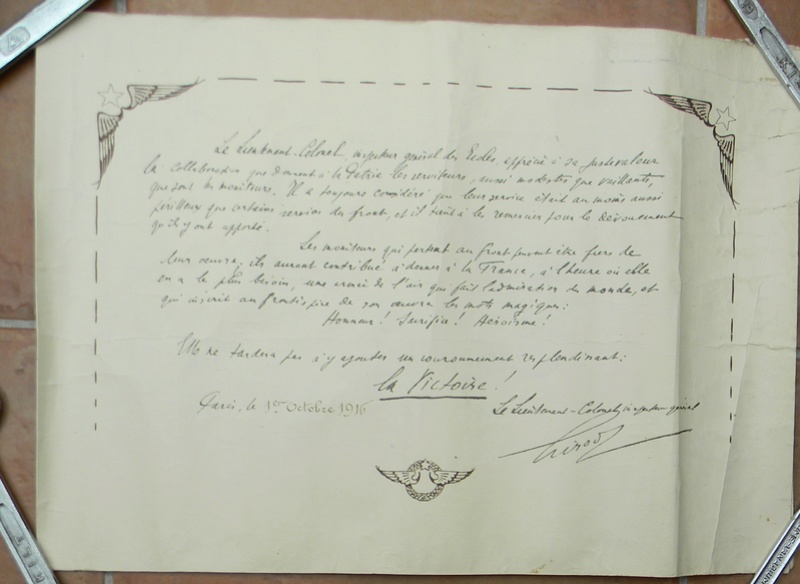 Le Lieutenant-Colonel, inspecteur général des Ecoles, apprécie à sa juste valeur
la collaboration que donnent à la Patrie les serviteurs, aussi modestes que vaillants,
que sont les moniteurs. Il a toujours considéré que leur service était au moins aussi
périlleux que certains services du front, et il tient à les remercier pour le dévouement
qu'ils y ont apporté.
Les moniteurs qui partent au front peuvent être fiers de
leur œuvre; ils auront contribué à donner à la France, à l'heure où elle
en a le plus besoin, une armée de l'air qui fait l'admiration du monde, et
qui inscrit au frontispice de son œuvre les mots magiques:
Honneur! Sacrifice! Héroïsme!
Elle ne tardera pas à y ajouter un couronnement resplendissant:
la Victoire!
Paris, le 1er Octobre 1916
Le Lieutenant-Colonel, inspecteur général
Girod